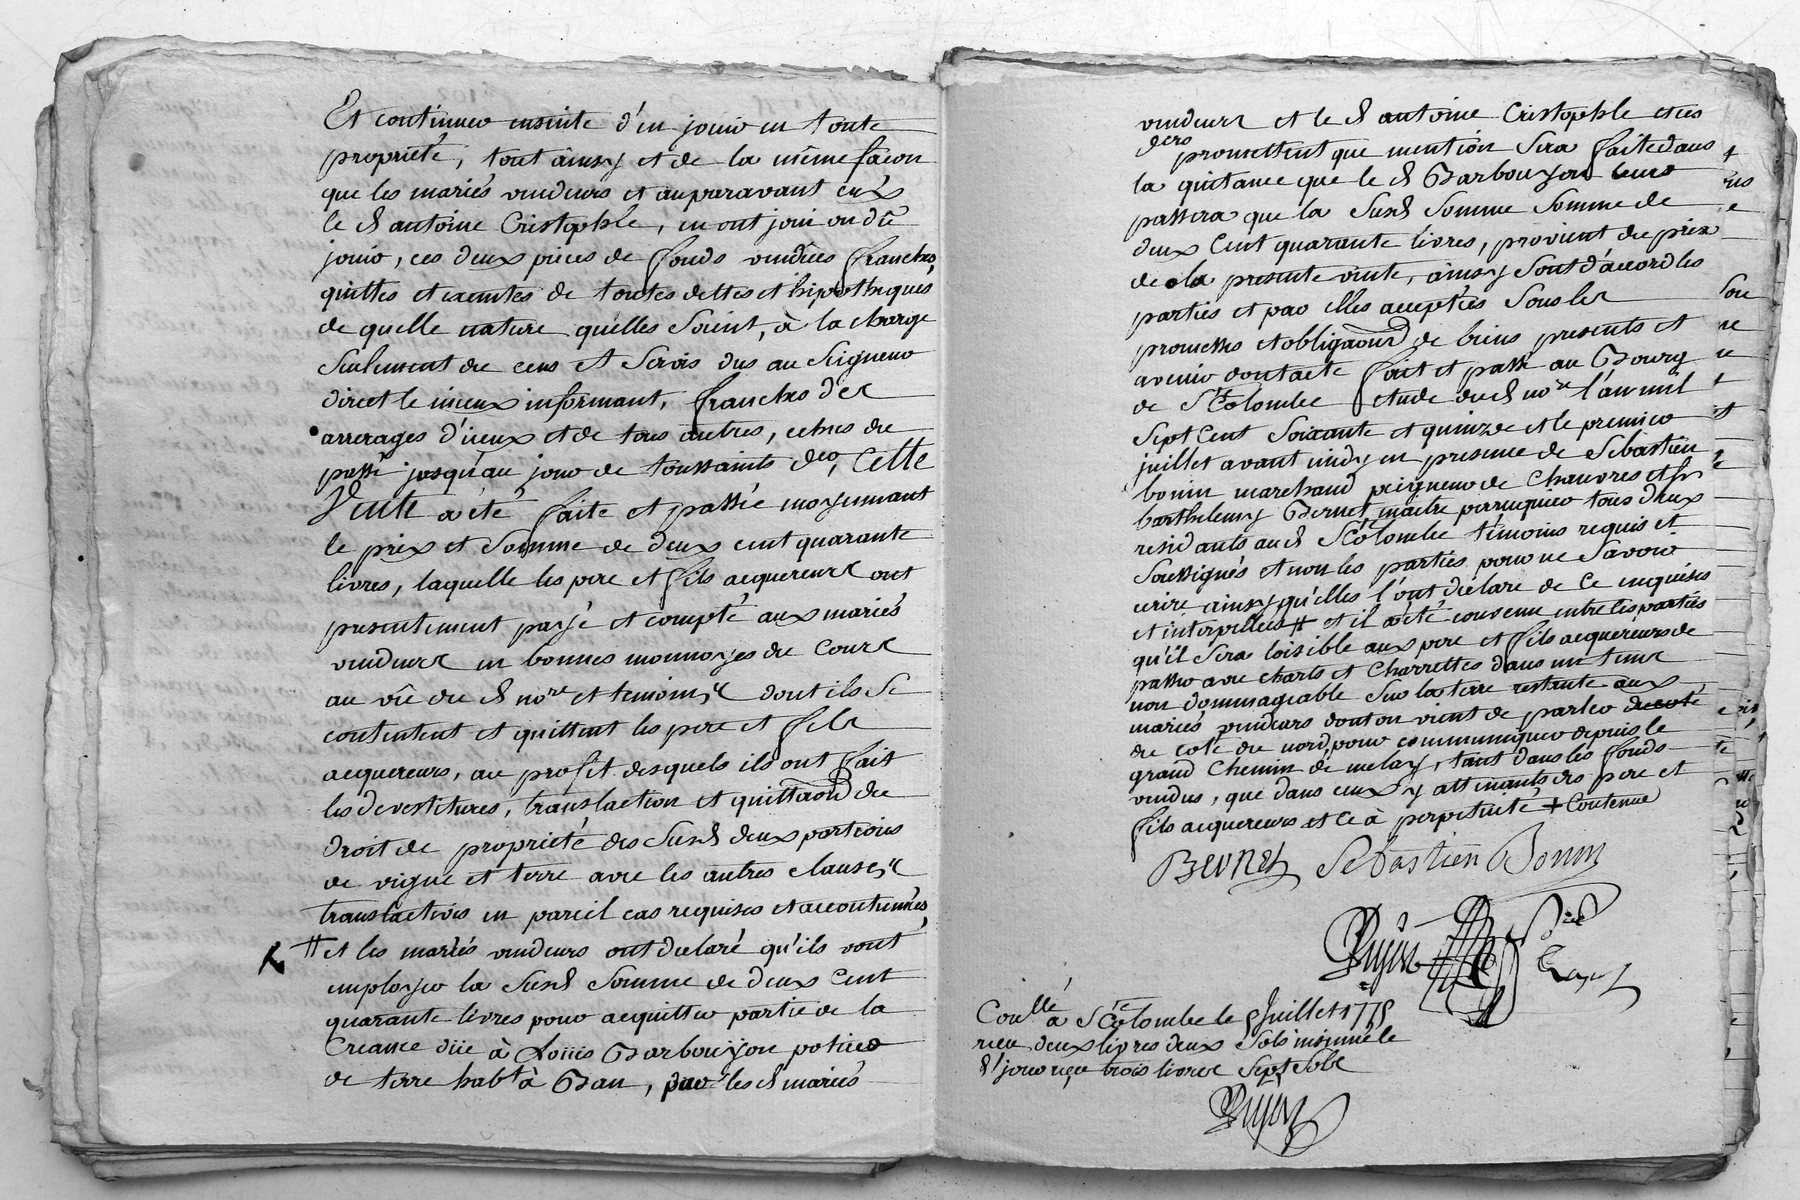 Et continuer ensuite d'en jouir en toute
proprieté, tout ainsy et de la même façon
que les mariés vendeurs et auparavant eux
le d antoine Cristophle, en ont joui ou dû
jouir, ces deux pièces de fonds vendües franches,
quittes et exemtes de toutes dettes et hipothèques
de quelle nature quelles soient, à la charge
seulement du cens et servis dus au seigneur
direct le mieux informant, franches d'es
arrerages d'iceux et de tous autres, charges du
passé jusqu'au jour de toussaints der, Cette
Vente a été faite et passée moyennant
le prix et somme de deux cent quarante
livres, laquelle les pere et fils acquereurs ont
presentement payé et compté aux mariés
vendeurs en bonnes monnoyes du cours
au vû du d nore et temoins dont ils se
contentent et quittent les pere et fils
acquereurs, au profit desquels ils ont fait
les devestitures, translaction et quittaõns du
droit de proprieté des susd deux portions
de vigne et terre avec les autres clauses
translatives en pareil cas requises et accoutumées,
# et les mariés vendeurs ont declaré qu'ils vont
employer la susd somme de deux cent
quarante livres pour acquitter partie de la
Creance düe à Loüis Barbouÿon potier
de terre habt à Ban, par les d mariés
vendeurs et le d antoine Cristophle et ces
ders promettent que mention sera faite dans
la quitance que le d Barbouyon leurs
passera que la susd somme somme de
deux Cent quarante livres, provient du prix
de la presente vente, ainsy sont d'accord les
parties et par elles acceptées sous les
promesses et obligaõns de biens presents et
avenir dont acte fait et passé au Bourg
de Ste Colombe etude du d nore l'an mil
sept Cent soixante et quinze et le premier
juillet avant midy en presence de Sebastien
bonin marchand peigneur de chanvres et sr
barthelemy Bernet maitre perruquier tous deux
residants au d Ste Colombe témoins requis et
soussignés et non les parties pour ne savoir
ecrire ainsy qu'elles l'ont déclaré de ce enquises
et interpellées # et il a été convenu entre les parties
qu'il sera loisible aux pere et fils acquereurs de
passer avec charts et charrettes dans un tems
non dommageable sur la terre restante aux
mariés vendeurs dont on vient de parler du coté
du coté du nord, pour communiquer depuis le
grand Chemin de melay, tant dans les fonds
vendus, que dans ceux y attenants des pere et
fils acquereurs et ce à perpetuité + Contenue
Bernet Sebastien Bonin
Pujin
Conllé à Ste Colombe le 5 Juillet 1775
reçu deux livres deux sols insinué le
d jour reçu trois livres sept sols
Pujin